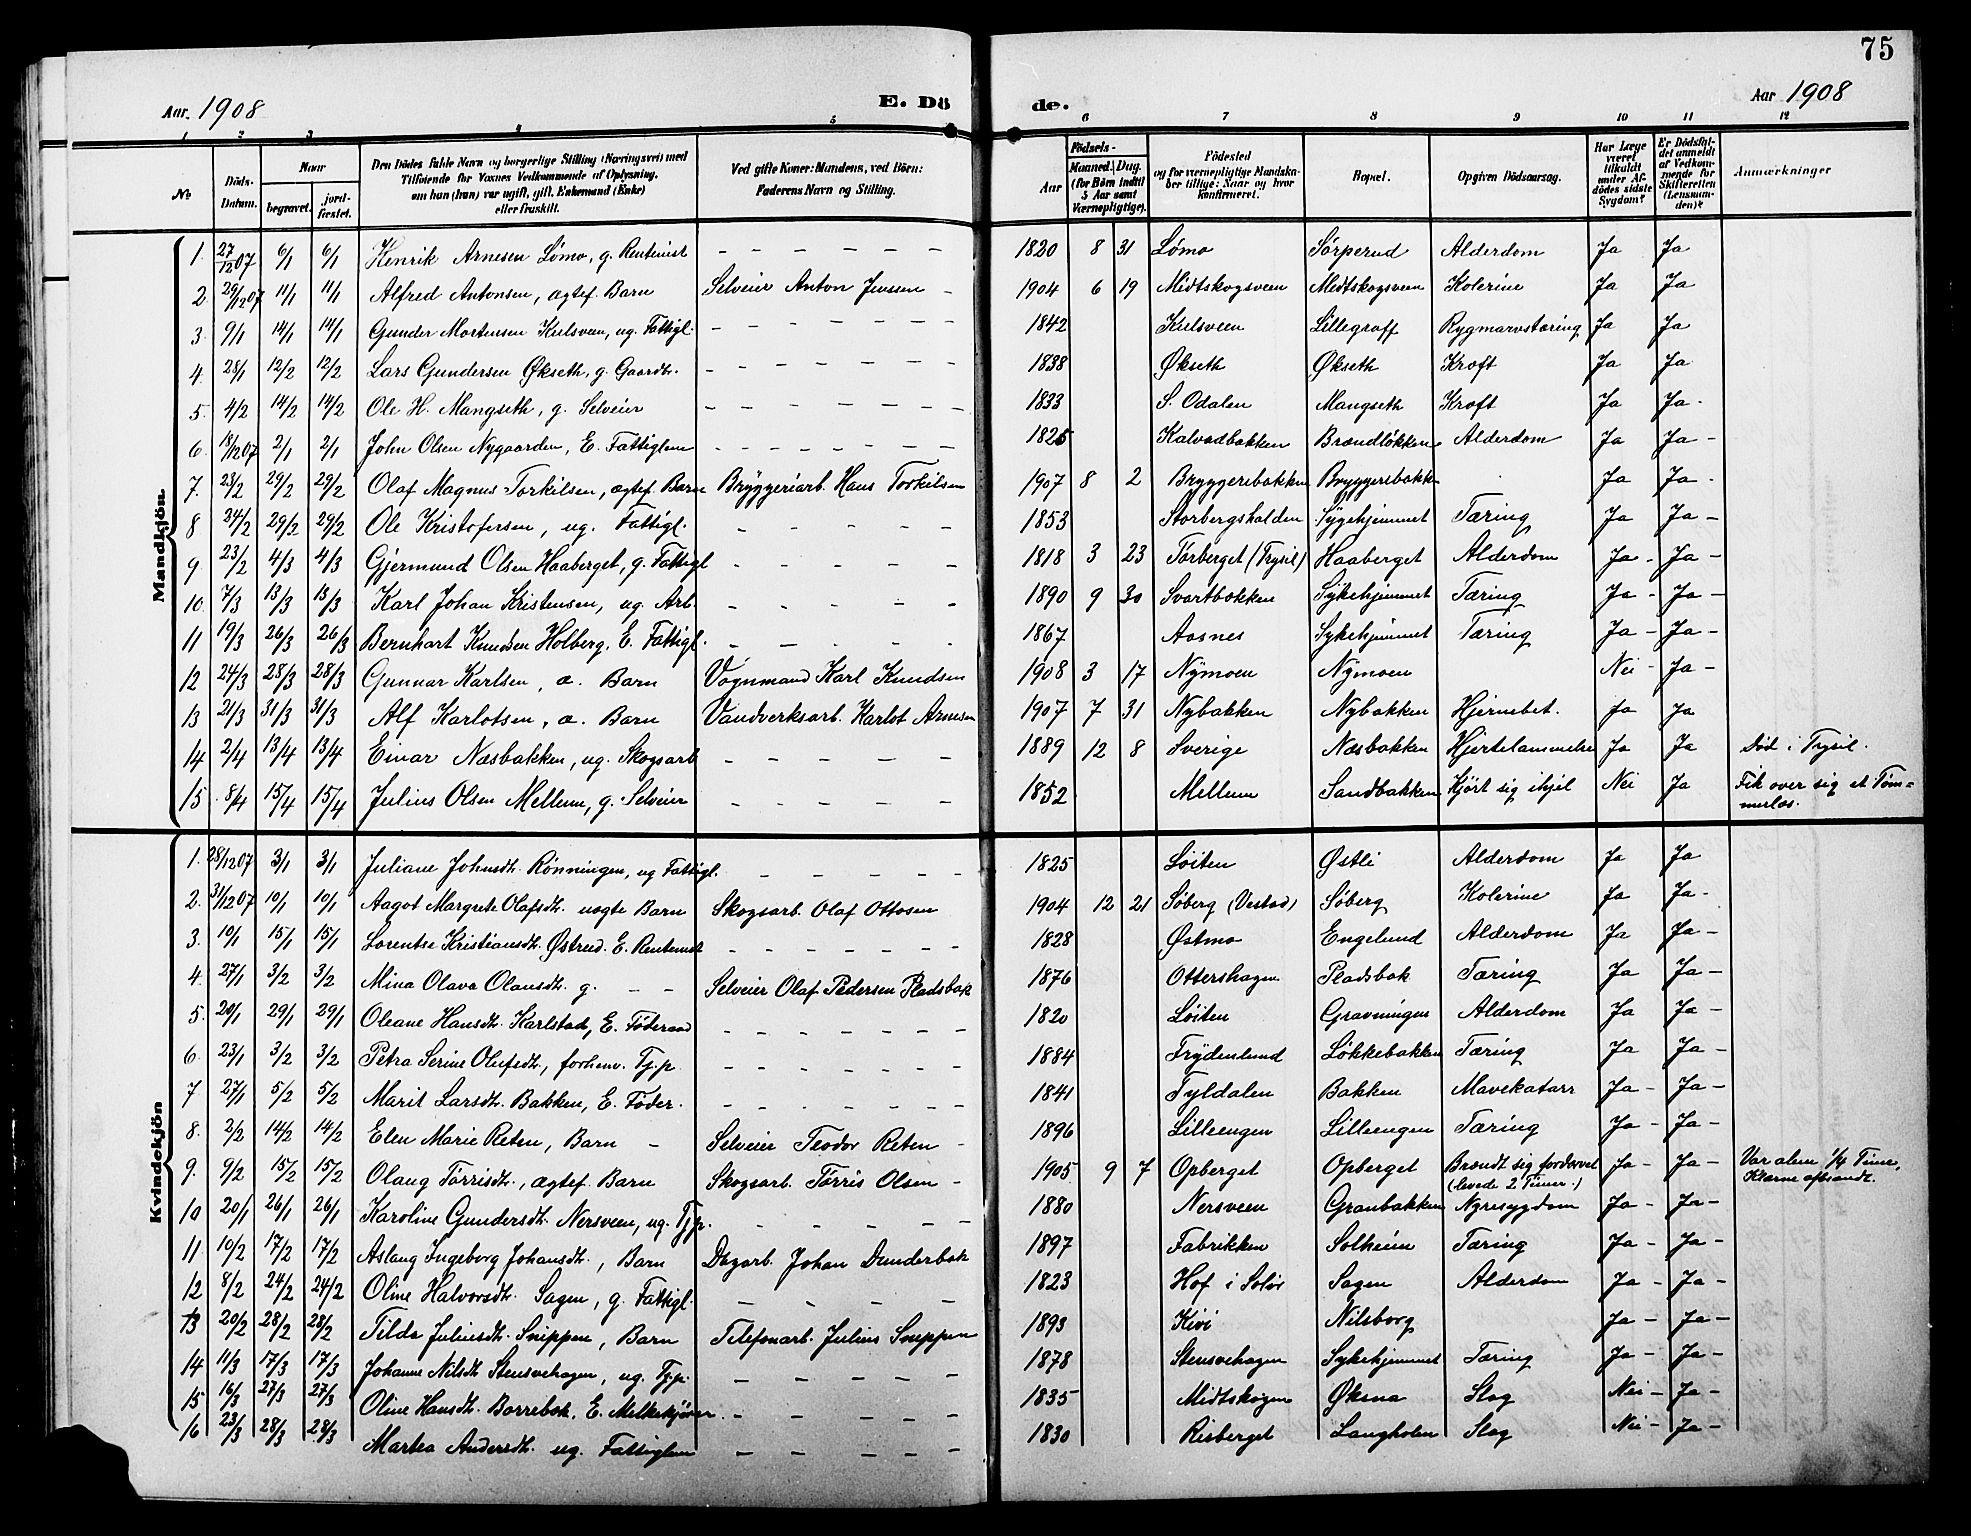 75
Aar 1908
E. Dö
de.
Aar 1908
1 2 3 4 5 6 7 8 9 10 11 12
No
Döds-Datum.
Naar
begravet.
jordfæstet.
Den Dödes fulde Navn og borgerlige Stilling (Næringsvei) med
Tilføiende for Voxnes Vedkommende af Oplysning,
om han (hun) var ugift, gift, Enkemand (Enke)
eller fraskilt.
Ved gifte Koner: Mandens, ved Börn:
Faderens Navn og Stilling.
Födsels-
Aar
Maaned. Dag.
(for Börn indtil
5 Aar samt
Værnepligtige).
Födested
og for værnepligtige Mandskaber tillige: Naar og hvor
konfirmeret.
Bopæl.
Opgiven Dödsaarsag.
Har Læge
været
tilkaldt
under Afdödes sidste
Sygdom?
Er Dödsfaldet anmeldt
af Vedkommende for
Skifteretten
(Lensmanden)?
Anmærkninger
Mandkjön.
1. 27/12 07 6/1 6/1 Henrik Arnesen Lömo, g. Rentenist – – – – – 1820 8 31 Lömo Sörperud Alderdom Ja Ja
2. 29/12 07 11/1 11/1 Alfred Antonsen, ægtef. Barn Selveier Anton Jenssen – 1904 6 19 Midtskogsveen Midtskogsveen Kolerine Ja Ja
3. 9/1 14/1 14/1 Gunder Mortensen Kulsveen, ug. Fattigl. – – – – – – 1842 Kulsveen Lillegraff Rygmarvstæring Ja Ja
4. 28/1 12/2 12/2 Lars Gundersen Økseth, g. Gaardbr. – – – – – – 1838 Økseth Økseth Kræft Ja Ja
5. 4/2 14/2 14/2 Ole H. Mangseth, g. Selveier – – – – – – 1833 S. Odalen Mangseth Kræft Ja Ja.
6. 18/12 07 2/1 2/1 John Olsen Nygaarden, E. Fattiglem – – – – – – 1825 Kalvadbakken Brændløkken Alderdom Ja Ja –
7. 23/2 29/2 29/2 Olaf Magnus Torkilsen, ægtef. Barn Bryggeriarb. Hans Torkilsen 1907 8 2 Bryggeribakken Bryggeribakk. Ja Ja.
8 24/2 29/2 29/2 Ole Kristofersen, ug. Fattigl. – – – – – 1853 Storbergshalden Sygehjemmet Tæring Ja Ja –
9 23/2 4/3 4/3 Gjermund Olsen Haaberget, g. Fattigl – – – – – 1818 3 23 Törberget (Trysil) Haaberget Alderdom Ja – Ja –
10. 7/3 13/3 13/3 Karl Johan Kristensen, ug. Arb. – – – – – 1890 9 30 Svartbakken Sykehjemmet Tæring Ja – Ja –
11 19/3 26/3 26/3 Bernhart Knudsen Holberg, E. Fattigl. – – – – – 1867 Aasnes Sykehjemmet Tæring Ja – Ja –
12 24/3 28/3 28/3 Gunnar Karlsen, æ. Barn Vognmand Karl Knudsen 1908 3 17 Nymoen Nymoen Nei – Ja –
13 21/3 31/3 31/3 Alf Karlotsen, æ. Barn Vandverksarb. Karlot Arnesen 1907 7 31 Nybakken Nybakken Hjernebet. Ja Ja
14 2/4 13/4 13/4 Einar Næsbakken, ug. Skogsarb – – – – – 1889 12 8 Sverige Næsbakken Hjertelammelse Ja Ja Död i Trysil.
15 8/4 15/4 15/4 Julius Olsen Mellum, g. Selveier – – – – – 1852 Mellum Sandbakken Kjört sig ihjel Nei Ja Fik over sig et Töm-
merlæs.
Kvindekjön
1. 28/12 07 3/1 3/1 Juliane Johnsdtr. Rönningen, ug Fattigl. – – – – – 1825 Löiten Østli Alderdom Ja Ja
2. 31/12 07 10/1 10/1 Aagot Margrete Olafsdtr. uægte Barn Skogsarb. Olaf Ottosen 1904 12 21 Söberg (Vestad) Söberg Kolerine Ja Ja –
3. 10/1 15/1 15/1 Lorentse Kristiansdtr. Østreid. E. Rentenist – – – – – – 1828 Østmo Engelund Alderdom Ja Ja –
4. 27/1 3/2 3/2 Mina Olava Olausdtr. g. – – Selveier Olaf Pedersen Pladsbak 1876 Ottershagen Pladsbak Tæring Ja Ja –
5. 20/1 29/1 29/1 Oleane Hansdtr. Karlstad, E. Föderaad – – – – – – – 1820 Löiten Gravningen Alderdom Ja Ja –
6. 23/1 3/2 3/2 Petra Serine Olufsdtr., forhenv. Tj.p – – – – – – – 1884 Frydenlund Løkkebakken Tæring Ja Ja –
7 27/1 5/2 5/2 Marit Larsdtr. Bakken, E. Föder. – – – – – – – 1841 Tyldalen Bakken Mavekatarr Ja – Ja –
8. 2/2 14/2 14/2 Elen Marie Reten, Barn – Selveier Teodor Reten – 1896 Lilleengen Lilleengen Tæring Ja – Ja –
9. 9/2 15/2 15/2 Olaug Törrisdtr., ægtef. Barn Skogsarb. Törris Olsen – 1905 9 7 Opberget Opberget Brændt sig fordærvet Ja – Ja – Var alene 1/4 Time,
(levede 2 Timer.) Klærne afbrændt.
10 20/1 26/1 26/1 Karoline Gundersdtr. Nersveen, ug. Tj.p. – – – – – 1880 Nersveen Granbakken Nyresygdom Ja – Ja –
11 10/2 17/2 17/2 Aslaug Ingeborg Johansdtr., Barn Dagarb. Johan Dunderbak 1897 Fabrikken Solheim Tæring Ja – Ja –
12 8/2 24/2 24/2 Oline Halvorsdtr. Sagen, g. Fattigl. – – – – – 1823 Hof i Solör Sagen Alderdom Ja – Ja –
13 20/2 28/2 28/2 Tilda Juliusdtr. Snippen, Barn Telefonarb. Julius Snippen 1893 Kivi Nilsborg Ja – Ja –
14 11/3 17/3 17/3 Johanne Nilsdtr Stensvehagen, ug. Tj.p. – – – – – 1878 Stensvehagen Sykehjemmet Tæring Ja – Ja –
15 16/3 27/3 27/3 Oline Hansdtr. Borrebak, E. Melkekjörer. – – – – – 1835 Midtskogen Øksna Slag Nei – Ja –
16 23/3 28/3 28/3 Martea Andersdtr. ug. Fattiglem – – – – – 1830 Risberget Langholen Slag Nei – Ja –